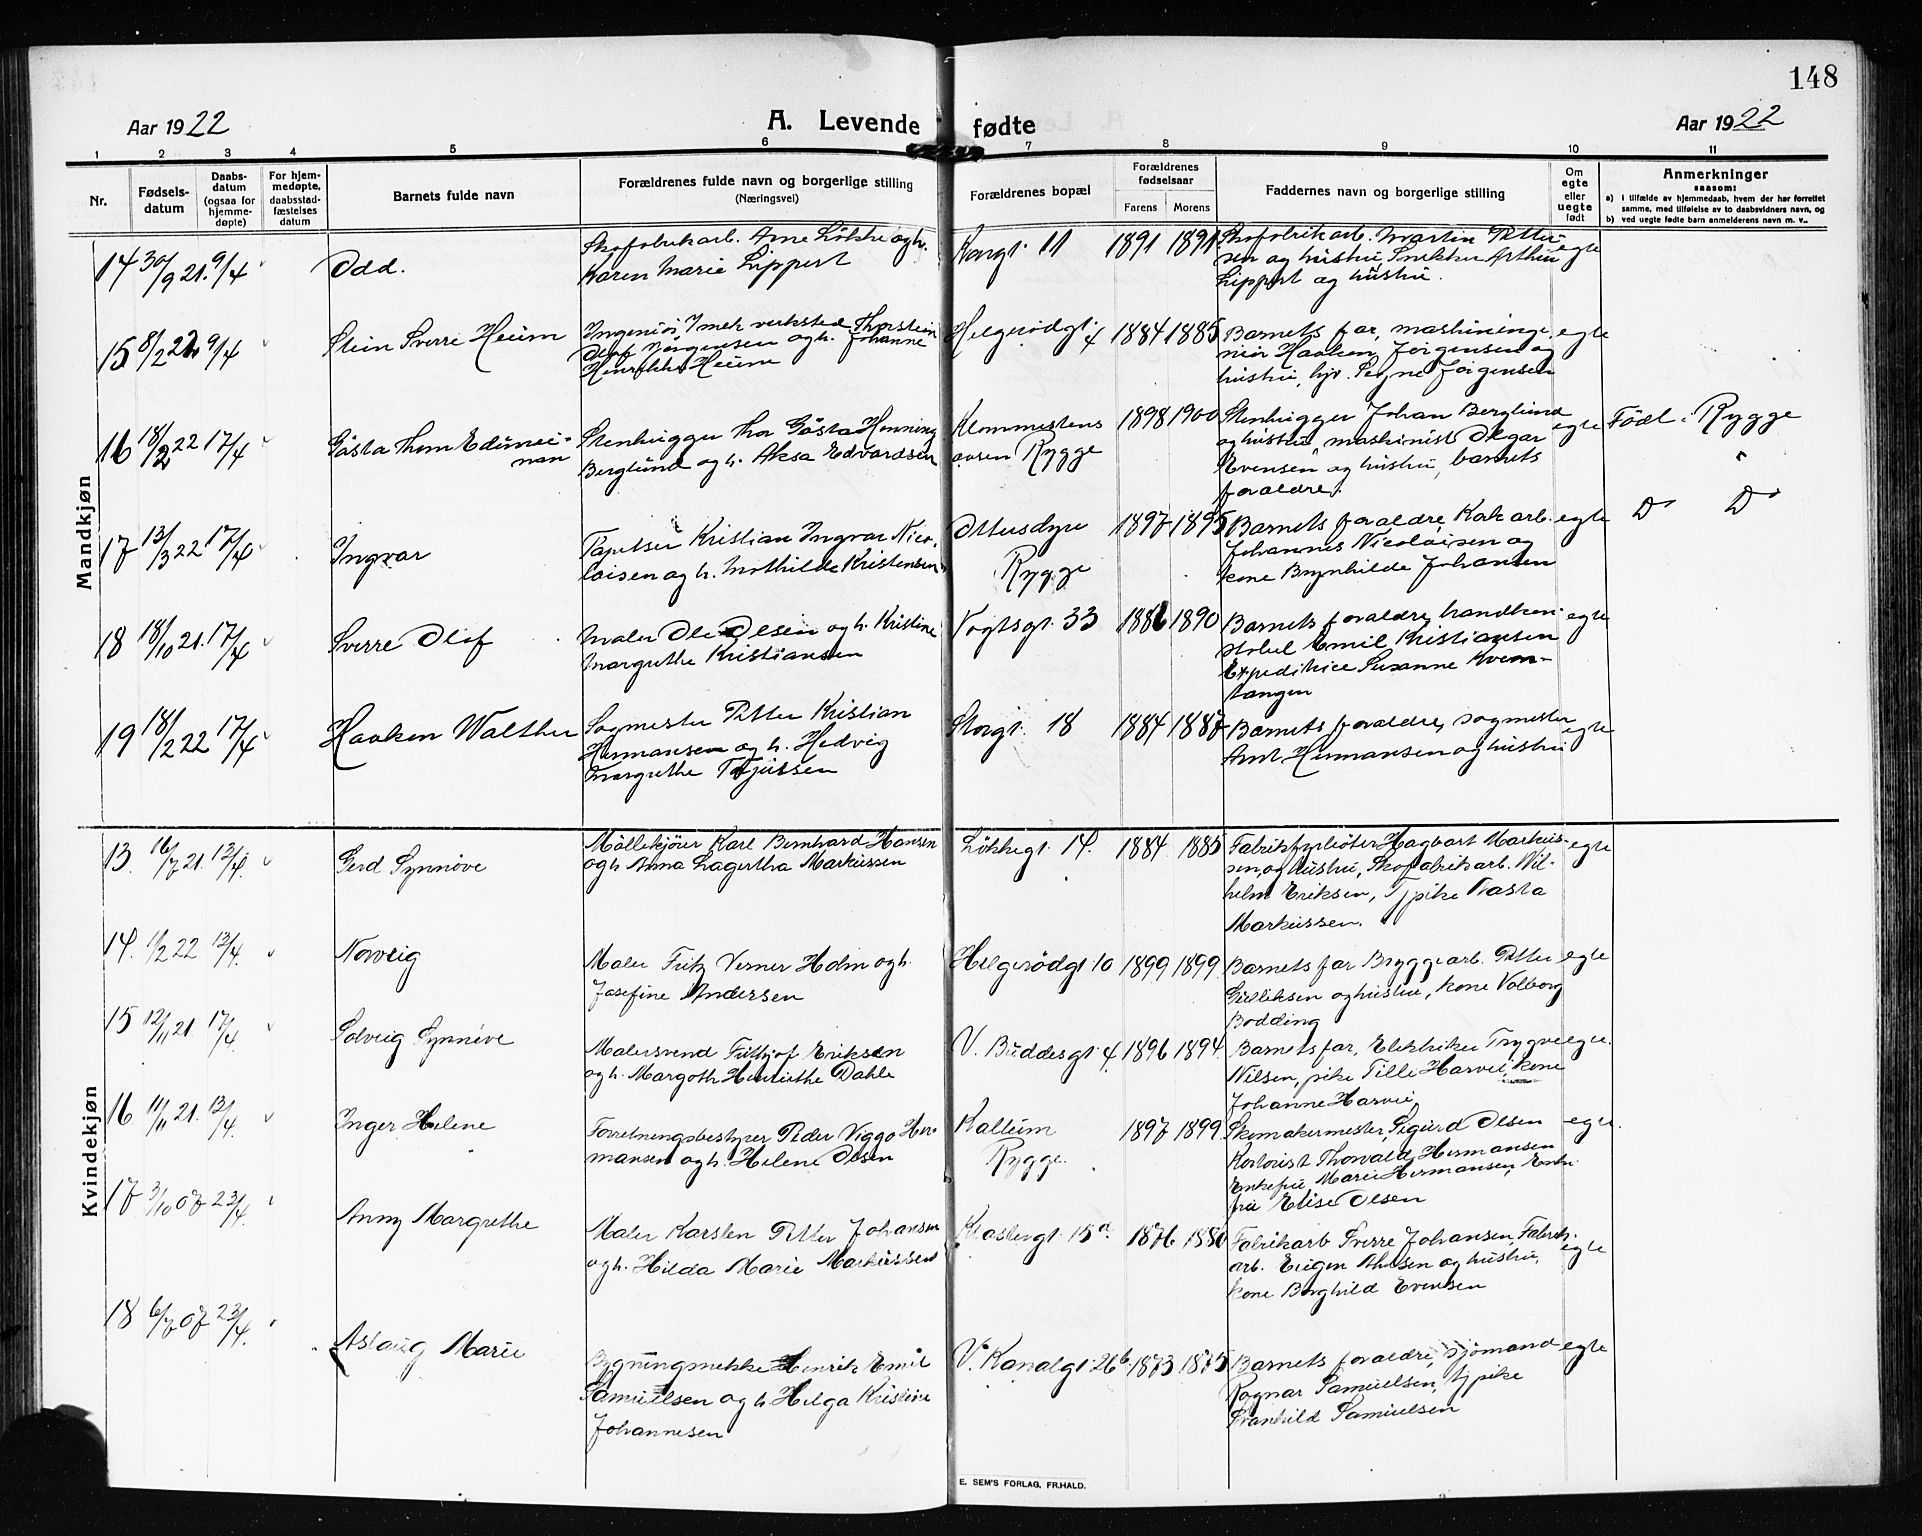 148
Aar 1922
A. Levende fødte
Aar 1922
1 2 3 4 5 6 7 8 9 10 11
Nr.
Fødsels-
datum
Daabs-
datum
(ogsaa for
hjemme-
døpte)
For hjem-
medøpte,
daabsstad-
fæstelses
datum
Barnets fulde navn
Forældrenes fulde navn og borgerlige stilling
(Næringsvei)
Forældrenes bopæl
Forældrenes
fødselsaar
Farens Morens
Faddernes navn og borgerlige stilling
Om
egte
eller
uegte
født
Anmerkninger
saasom:
a) i tilfælde av hjemmedaab, hvem der har forrettet
samme, med tilføielse av to daabsvidners navn, og
b) ved uegte fødte barn anmelderens navn m. v..
Mandkjøn
14 30/9 21. 9/4
Odd.
Skofabrikarb. Arne Løkke og h.
Karen Marie Lippert
Kongt. 11
1891 1891
Skofabrikarb. Martin Petter-
sen og hustru, Snekker Arthur
Lippert og hustru.
egte
15 8/2 22 9/4
Stein Sverre Heium
Ingeniør v mek verksted Thorstein
Olaf Jörgensen og h. Johanne
Henrikke Heium
Helgerödgt. 4
1884 1885
Barnets far, maskininge-
niör Haaken Jörgensen og
hustru, hjv. Signe Jörgensen
egte
16 18/2 22 17/4
Gösta Thom Edunei-
nan
Stenhugger Thor Gösta Henning
Berglund og h. Aksa Edvardsen
Klommestens
aasen Rygge
1898 1900
Stenhugger Johan Berglund
og hustru, maskinist Olgar
Evensen og hustru, barnets
foraldre.
egte
Födt i Rygge
17 13/3 22 17/4
Ingvar
Tapetser Kristian Ingvar Nico-
laisen og h. Mathilde Kristensen
Ottersdyr
Rygge
1897 1895
Barnets foraldre, Kak arb.
Johannes Nicolaisen og
kone Brynhilde Johansen
egte
Do Do
18 18/10 21. 17/4
Sverre Olaf
Maler Ole Olsen og h. Kristine
Margrethe Kristiansen
Vogtsgt. 33
1886 1890
Barnets foraldre, handken-
stabel Emil Kristiansen
Expeditrice Susanne Kvern-
tangen
egte
19 18/2 22 17/4
Haaken Walther
Sagmester Petter Kristian
Hermansen og h. Hedvig
Margrethe Terjussen
Storgt. 18
1884 1887
Barnets foraldre, sagmester
Arnt Hermansen og hustru
egte
Kvindekjøn
13. 16/7 21. 13/4.
Gerd Synnöve
Möllekjörer Karl Bernhard Hansen
og h. Anna Lagertha Markussen
Lökkegt 14.
1884 1885
Fabrikfyrböter Hagbart Markus-
sen, og hustru, Skofabrikarb. Wil-
helm Eriksen, Tj pike Nasta
Markussen.
egte
14. 1/2 22 13/4.
Norveig
Maler Fritz Verner Holm og h.
Josefine Andersen
Helgerödgt. 10
1899 1899
Barnets far Bryggearb. Petter
Gulliksen og hustru, kone Valborg
Bodding
egte
15 12/11 21 17/4.
Solveig Synnöve
Malersvend Fritjof Eriksen
og h. Margoth Henriethe Dahle
V. Buddesgt. 4.
1896 1894.
Barnets far, Elektriker Trygve
Nilsen, pike Tilli Harvei, kone
Johanne Harvei
egte.
16 11/11 21. 13/4.
Inger Helene
Forretningsbestyrer Peder Viggo Her-
mansen og h. Helene Olsen
Kallum
Rygge.
1897 1899
Skomakermester, Sigurd Olsen
Kontorist Thorvald Hermansen
Enkefru Marie Hermansen, Enke-
fru Elise Olsen
egte.
17 3/10 07 23/4.
Anny Margrethe
Maler Karsten Petter Johansen
og h. Hilda Marie Markussen
Klostergt. 15a.
1876 1880
Fabrikarb Sverre Johansen, Fabrik-
arb. Eigen Thusen og hustru,
kone Borghild Evensen
egte
18 6/7 07 23/4.
Aslaug Marie
Bygningsnekker Henrik Emil
Samuelsen og h. Helga Kristine
Johannesen
V. Kanalgt. 26b.
1873 1875
Barnets foraldre, sjömand
Ragnar Samuelsen, tj pike
Svanhild Samuelsen
egte
E. SEM'S FORLAG, FR.HALD.